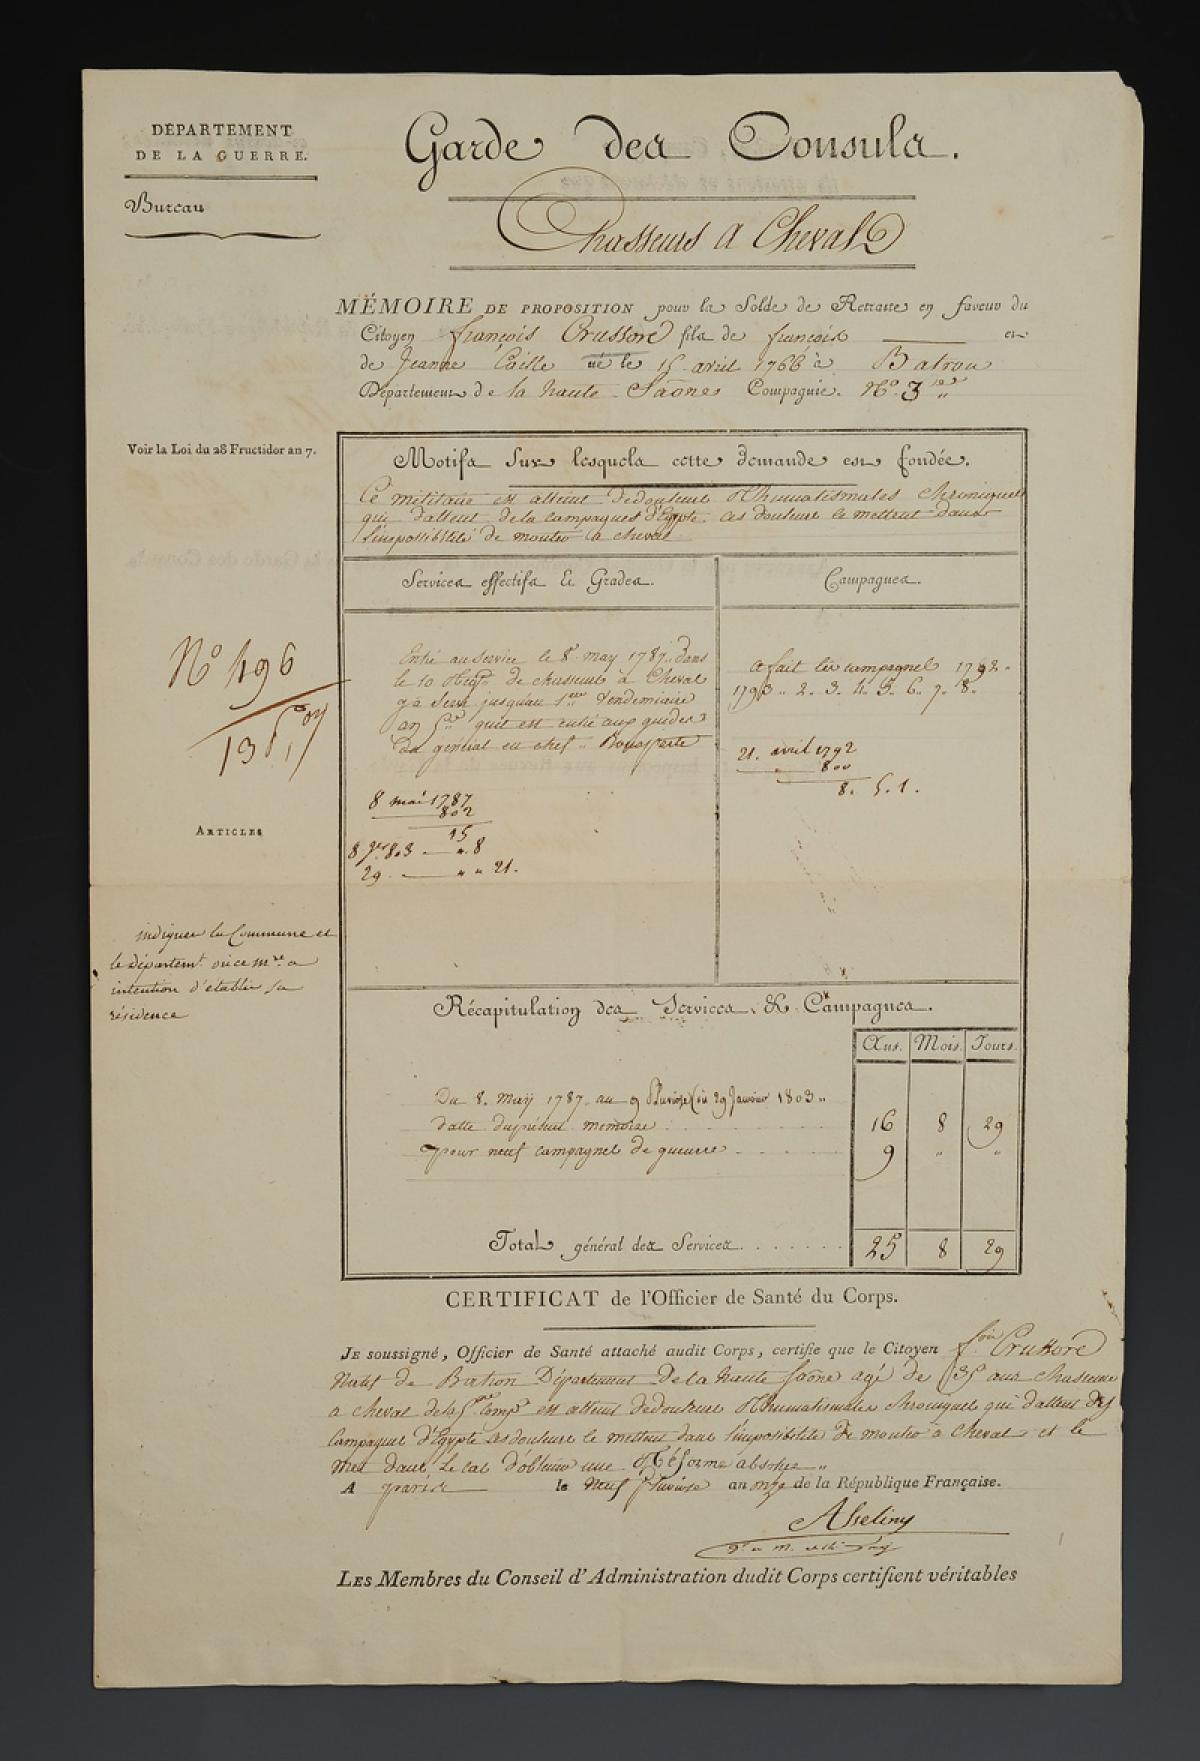 DÉPARTEMENT
DE LA GUERRE.
Bureau
Garde des Consuls.
Chasseurs a Cheval
MÉMOIRE DE PROPOSITION pour la Solde de Retraite en faveur du
Citoyen françois Crussore fils de françois et
de Jeanne Caille né le 15 avril 1766 à Batrou
Département de la haute Saône Compagnie. No. 3
Voir la Loi du 28 Fructidor an 7.
Motifs Sur lesquels cette demande est fondée.
Ce militaire est atteint de douleurs Rhumatismales chroniques
qui datteut de la campagnes d'Egypte ces douleurs le mettent dans
l'impossibilité de monter à cheval
Services effectifs & Grades.
Campagnes.
No 496
Entré au service le 8 may 1787 dans
le 10 Reg.t de chasseurs à Cheval
y a servi jusqu'au 1er Vendemiaire
an 5 quil est entré aux guides
du général en chef Bonaparte
a fait les campagnes 1792.
1793. 2. 3. 4. 5. 6. 7. 8.
21. avril 1792
800
8. 5. 1.
8 mai 1787
802
15
8 803 — " 8
29 — " " 21.
ARTICLES
indiquer la Commune et
le Départem.t où ce m.re a
intention d'établir sa
résidence
Récapitulation des Services & Campagnes.
Ans. Mois. Jours.
Du 8. may 1787 au 9 Pluviose (ou 29 Janvier 1803
datte du présent mémoire 16 8 29
pour neuf campagnes de guerre 9 " "
Total général des Services 25 8 29
CERTIFICAT de l'Officier de Santé du Corps.
JE soussigné, Officier de Santé attaché audit Corps, certifie que le Citoyen f.ois Crussore
natif de Batrou Département De la haute Saône agé de 35 ans chasseur
a cheval de la Comp.e est atteint de douleurs Rhumatismales chroniques qui dattent des
Campagnes d'Egypte ces douleurs le mettent dans l'impossibilité de monter à cheval et le
met dans le cas d'obtenir une Réforme absolue
A paris le neuf Pluviose an onze de la République Française.
LES Membres du Conseil d'Administration dudit Corps certifient véritables